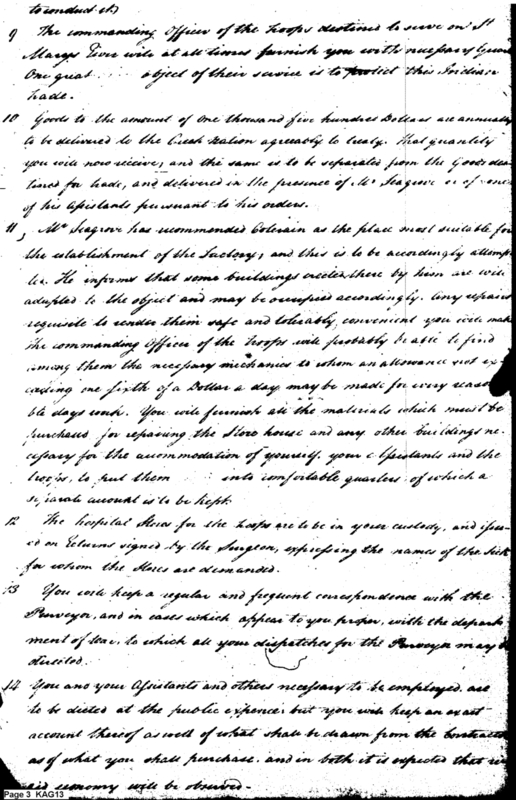 to conduct it.
9 The commanding Officer of the troops destined to serve on St
Marys River will at all times furnish you with necessary Guard
One great object of their service is to protect this Indian
trade.
10 Goods to the amount of One thousand five hundred Dollars are annually
to be delivered to the Creek Nation agreeably to treaty. That quantity
you will now receive, and the same is to be separated from the Goods des
tined for trade, and delivered in the presence of Mr Seagrove or of one
of his Assistants pursuant to his orders.
11, Mr Seagrove has recommended Colerain as the place most suitable for
the establishment of the Factory; and this is to be accordingly attemp
ted. He informs that some buildings erected there by him are well
adapted to the object and may be occupied accordingly. Any repairs
requisite to render them safe and tolerably convenient you will make
The commanding Officer of the troops will probably be able to find
among them the necessary mechanics to whom an allowance not ex
ceeding one sixth of a Dollar a day may be made for every reasona
ble days work. You will furnish all the materials which must be
purchased for repairing the Store house and any other buildings ne
cessary for the accommodation of yourself, your Assistants and the
troops, to put them into comfortable quarters: of which a
separate account is to be kept.
12 The hospital Stores for the troops are to be in your custody, and issu
ed on Returns signed by the Surgeon, expressing the names of the Sick
for whom the Stores are demanded.
13 You will keep a regular and frequent correspondence with the
Purveyor, and in cases which appear to you proper, with the depart
ment of War, to which all your dispatches for the Purveyor may be
directed.
14 You and your Assistants and others necessary to be employed are
to be dieted at the public expence: but you will keep an exact
account thereof as well of what shall be drawn from the Contractor
as of what you shall purchase. and in both it is expected that
economy will be observed.
Page 3 KAG13